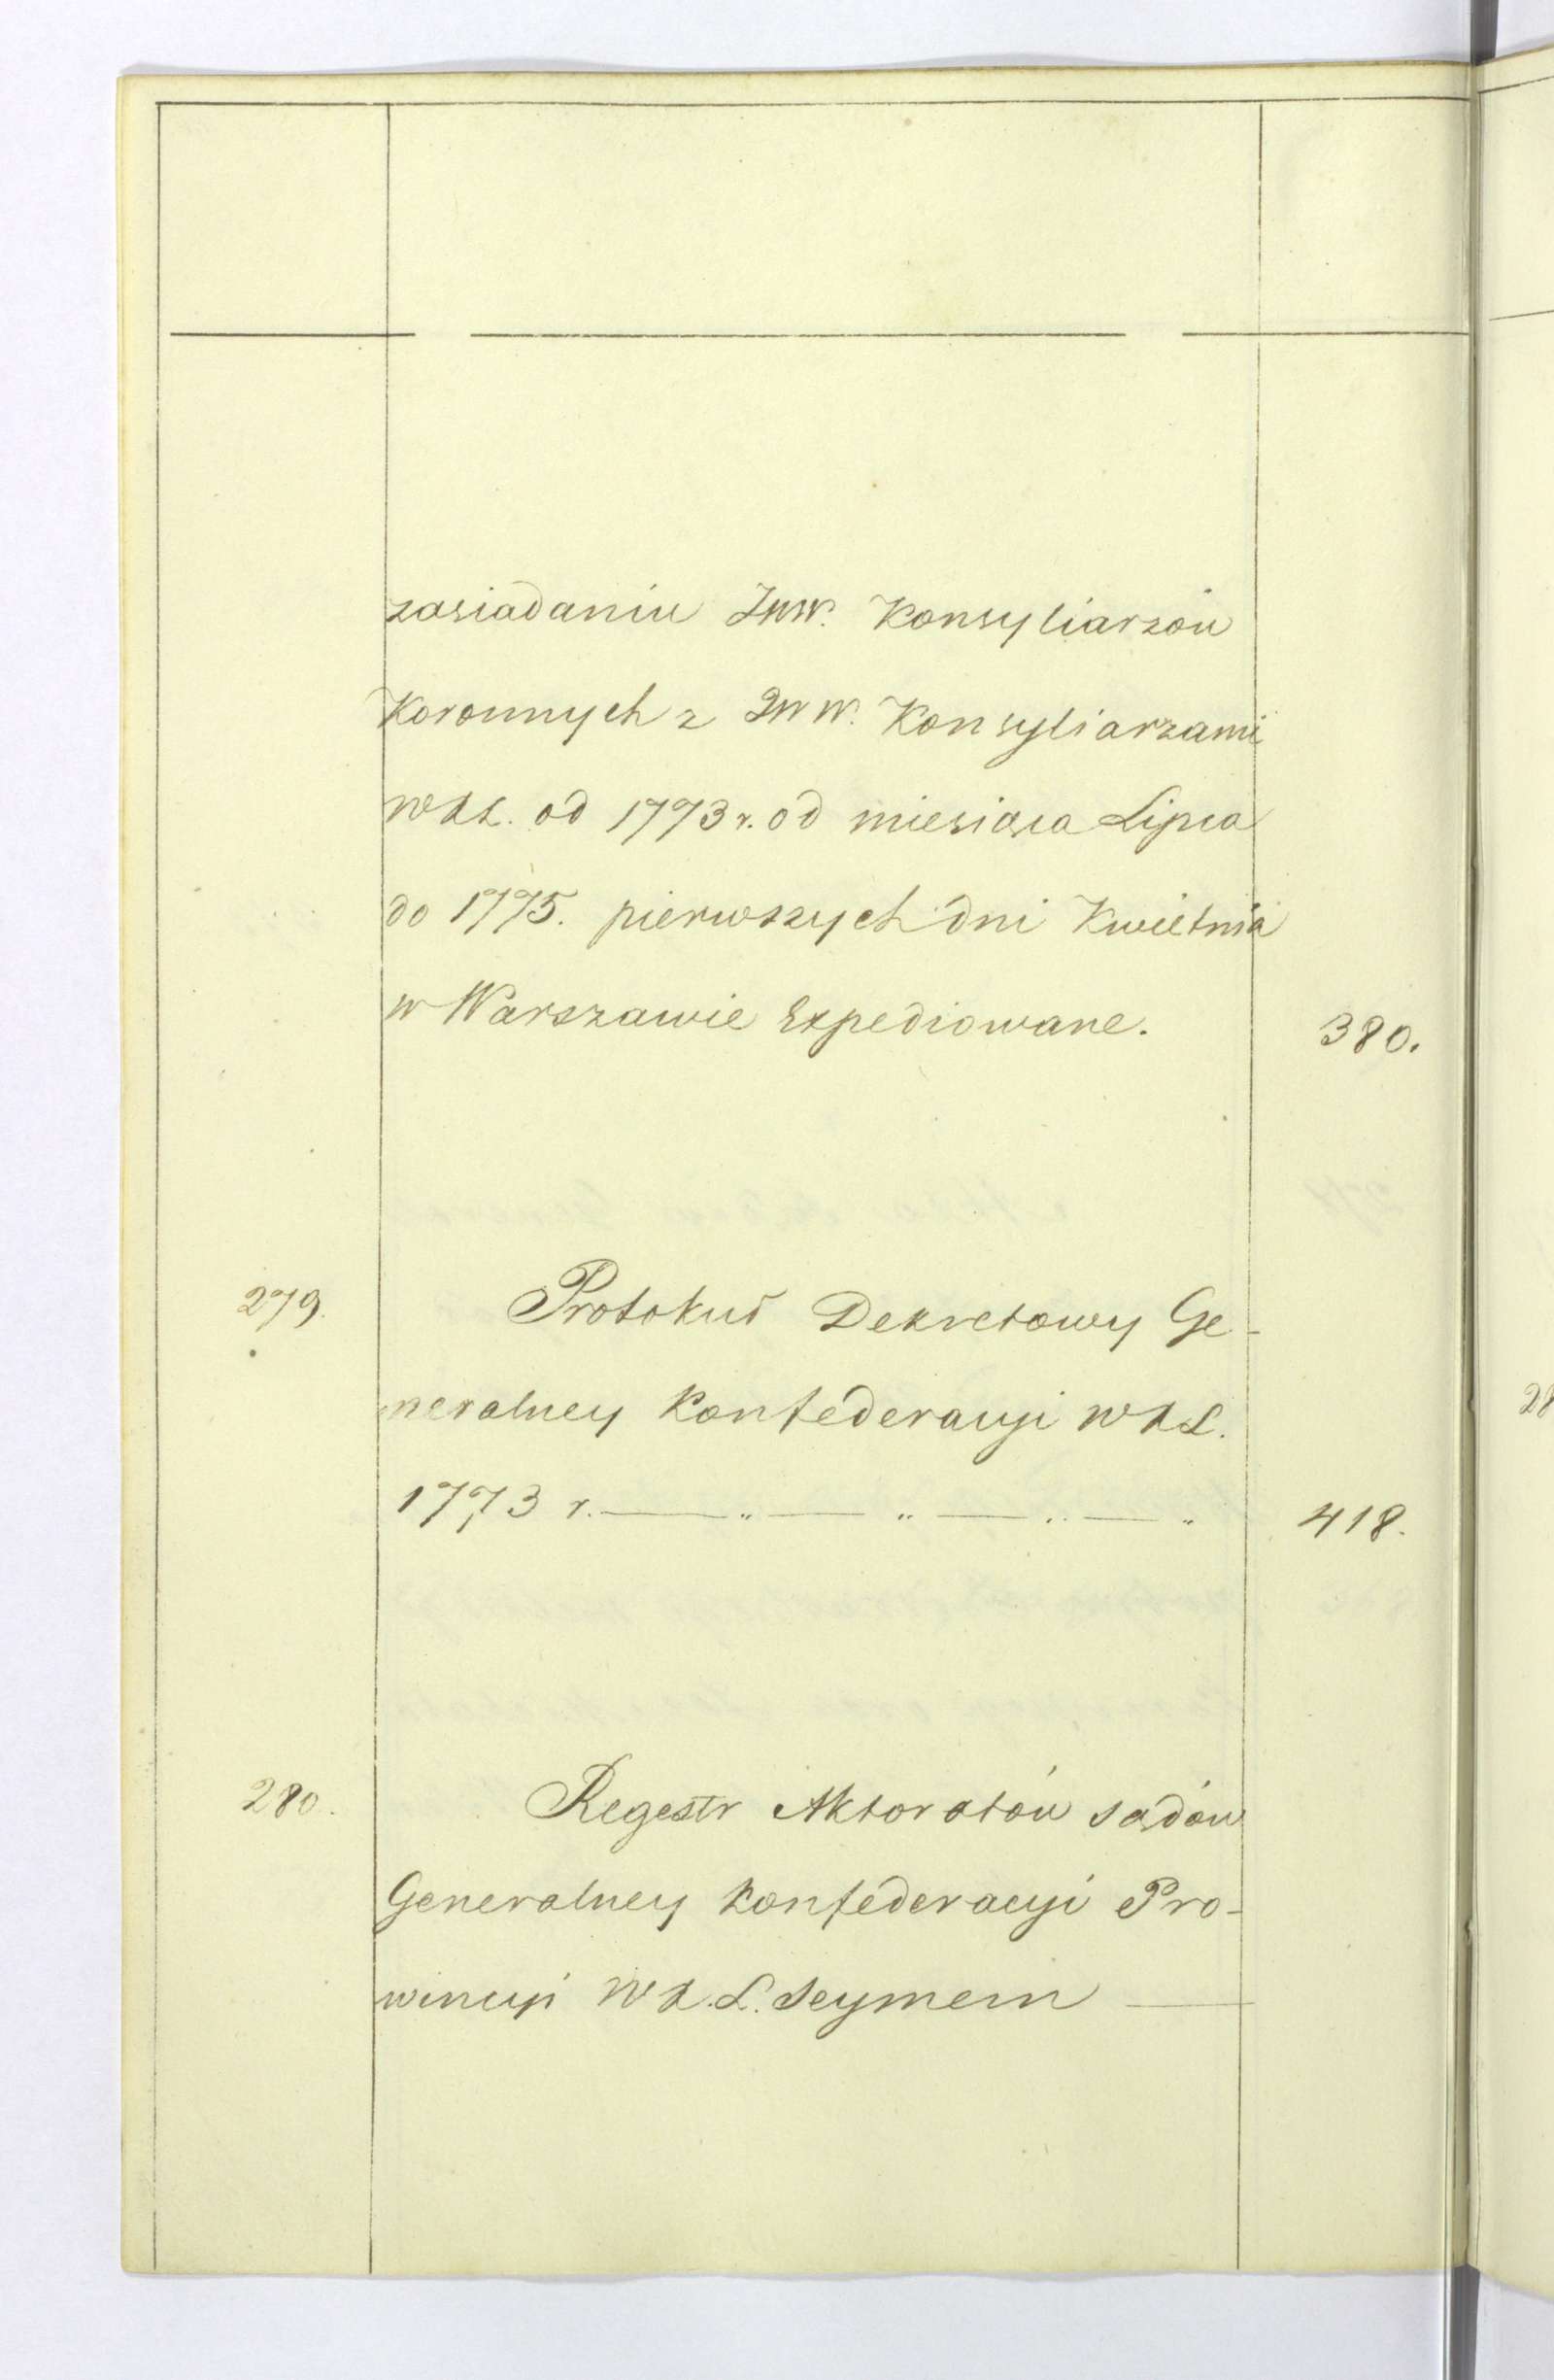 zasiadaniu JWW. Konsyliarzów
Koronnych z JWW. Konsyliarzami
WXL. od 1773 r. od miesiąca Lipca
do 1775. pierwszych dni Kwietnia
w Warszawie Expediowane. 380.
279. Protokuł Dekretowy Ge-
neralney Konfederacyi WXL.
1773 r. — „ — „ — „ — „ 418.
280. Regestr Aktoratów sądów
Generalney Konfederacyi Pro-
wincyi WX.L. Seymem —
28